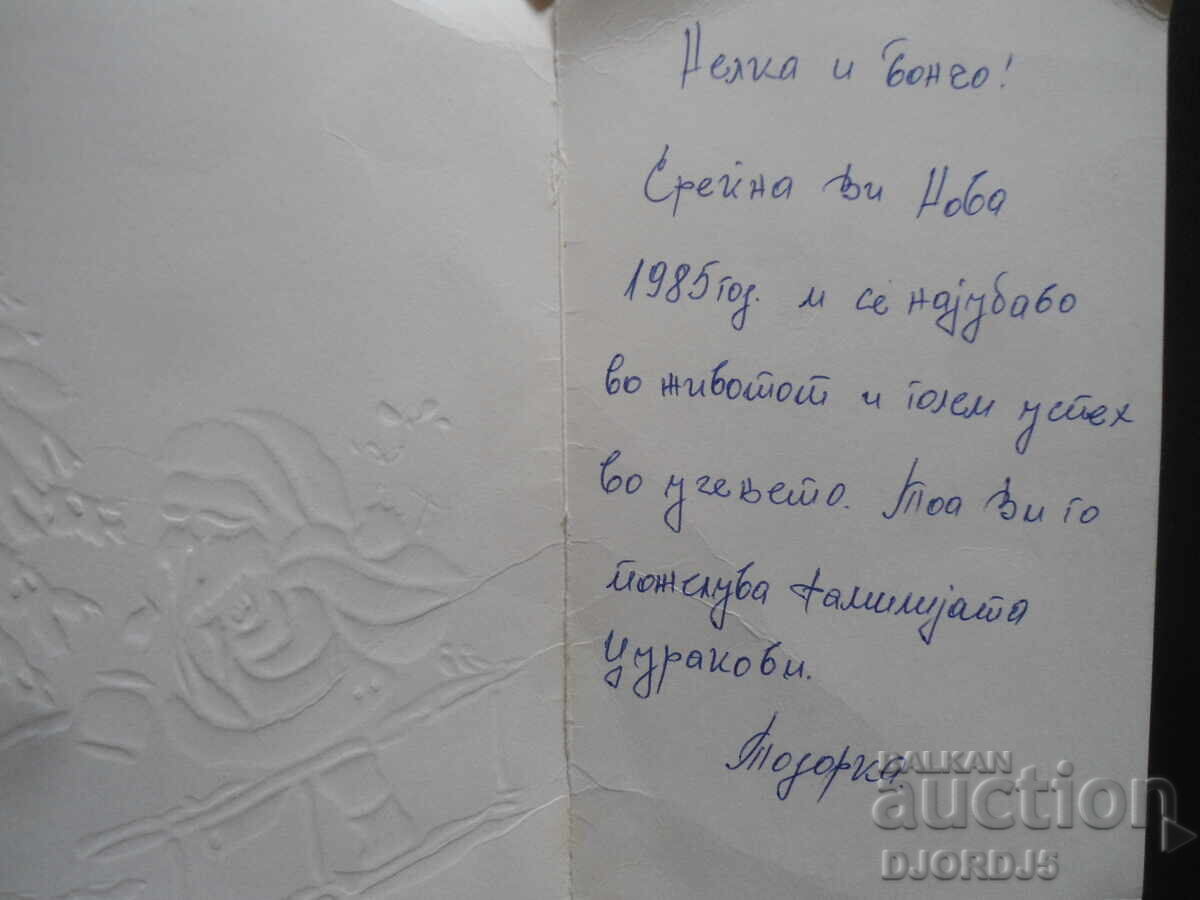 Нелка и Бончо!
Среќна Ви Нова
1985 год. и сѐ најубаво
во животот и голем успех
во учењето. Тоа Ви го
пожелува фамилијата
Цуракови.
Тодорка
BALKAN
auction
DJORDJ5